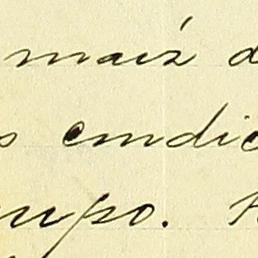 maiź d
s condic
upo.